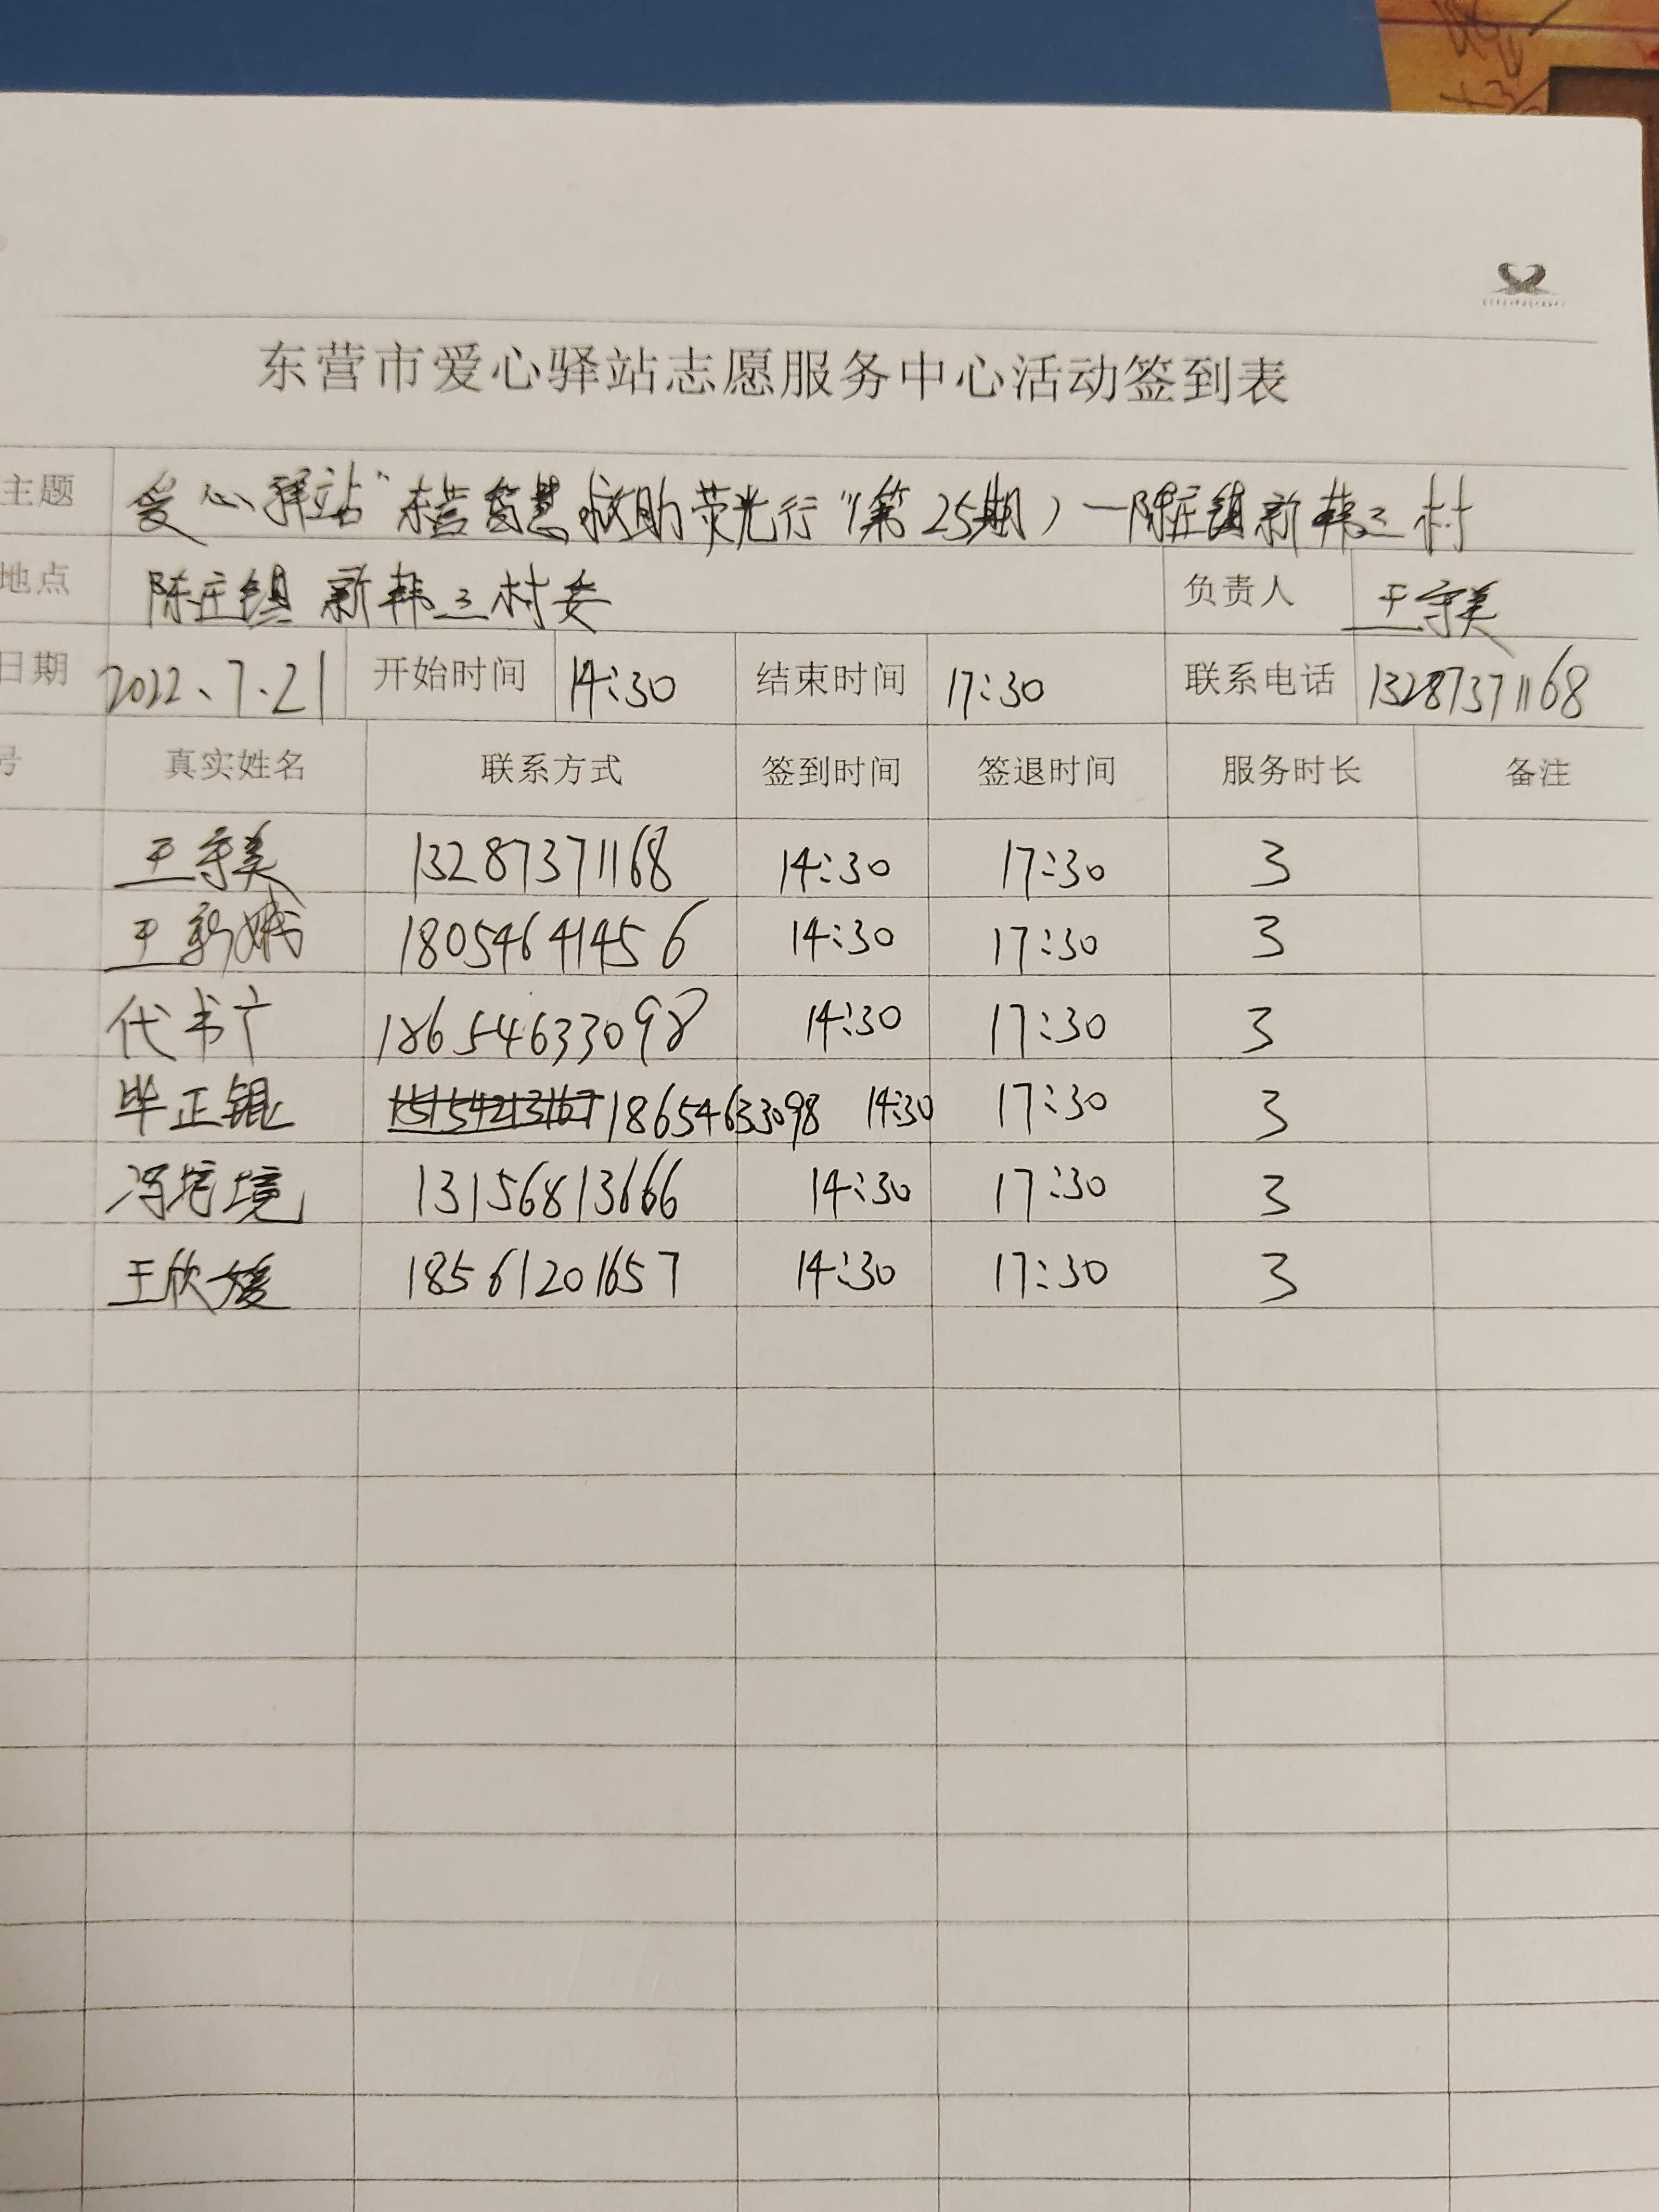 东营市爱心驿站志愿服务中心活动签到表
主题 爱心驿站“东营智慧救助荧光行”(第25期)—陈庄镇新韩三村
地点 陈庄镇新韩三村委 负责人 王守美
日期 2022、7.21 开始时间 14:30 结束时间 17:30 联系电话 13287371168
号 真实姓名 联系方式 签到时间 签退时间 服务时长 备注
王守美 13287371168 14:30 17:30 3
王 18054641456 14:30 17:30 3
代书广 18654633098 14:30 17:30 3
毕正锟 15154213167 18654633098 14:30 17:30 3
冯培境 13156813666 14:30 17:30 3
王欣媛 18561201657 14:30 17:30 3